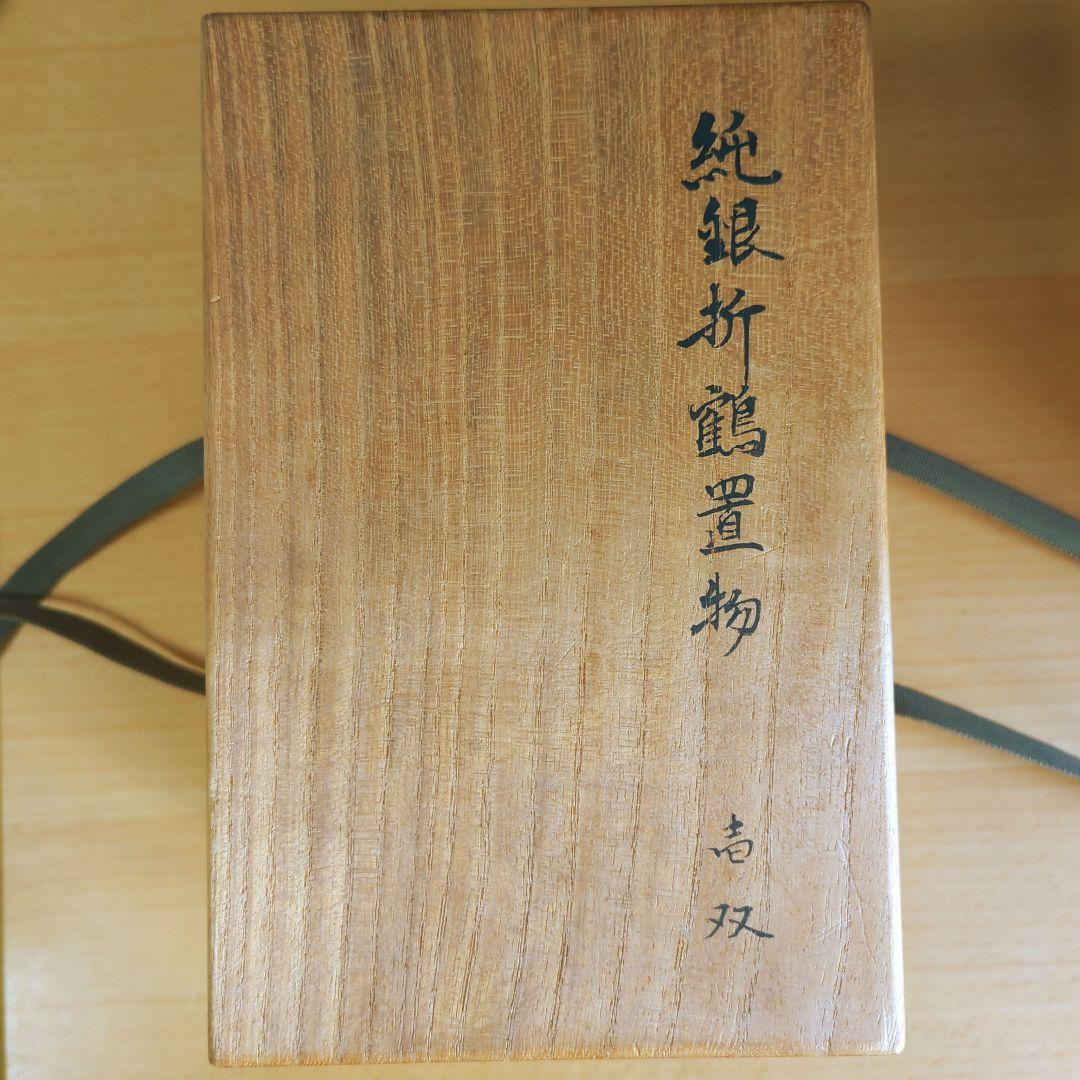 純銀折鶴置物
壱双